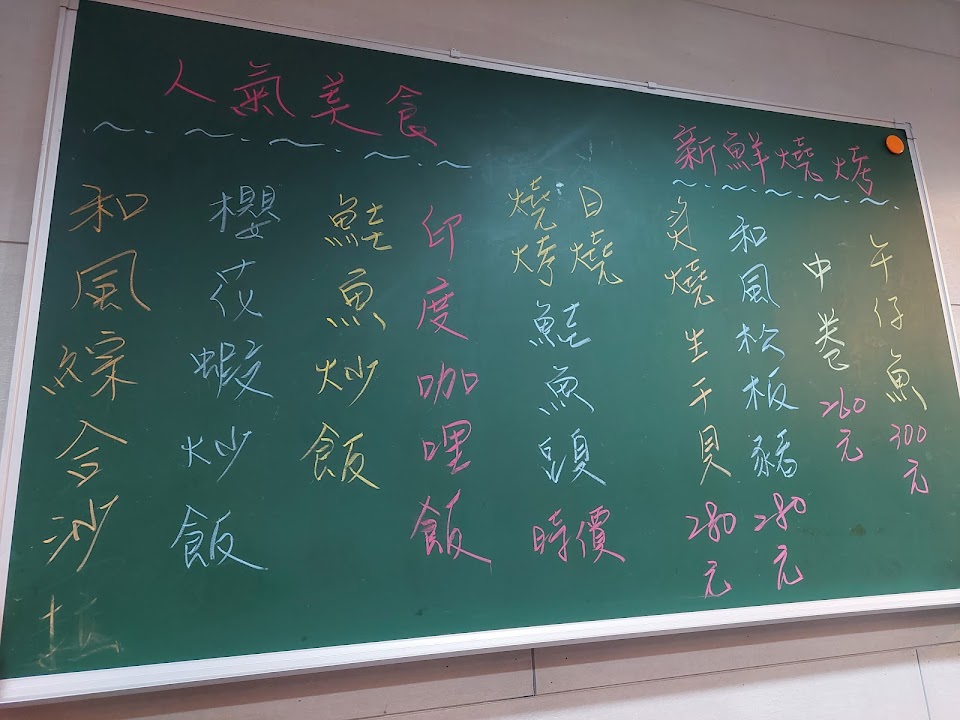 人氣美食
和風綜合沙拉
櫻花蝦炒飯
鮭魚炒飯
印度咖哩飯
燒烤
日燒
鮭魚頭
時價
新鮮燒烤
炙燒生干貝280元
和風松板豬280元
中卷260元
午仔魚300元